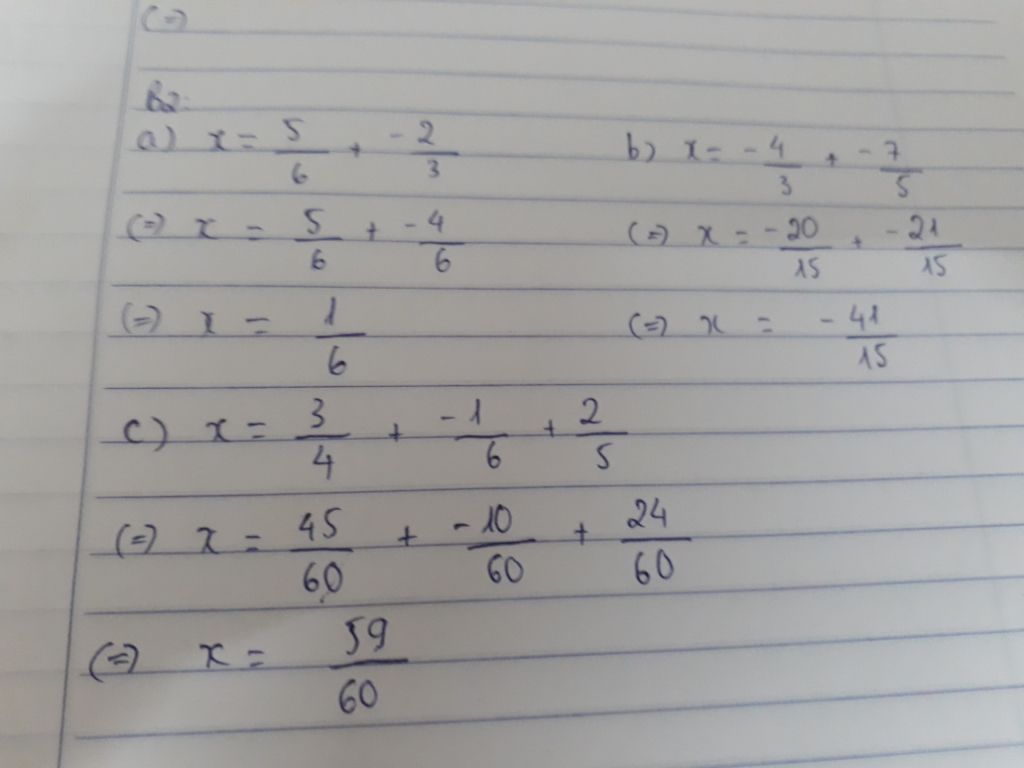 (=)
B2:
a) x = 5/6 + -2/3
(=) x = 5/6 + -4/6
(=) x = 1/6
b) x = -4/3 + -7/5
(=) x = -20/15 + -21/15
(=) x = -41/15
c) x = 3/4 + -1/6 + 2/5
(=) x = 45/60 + -10/60 + 24/60
(=) x = 59/60